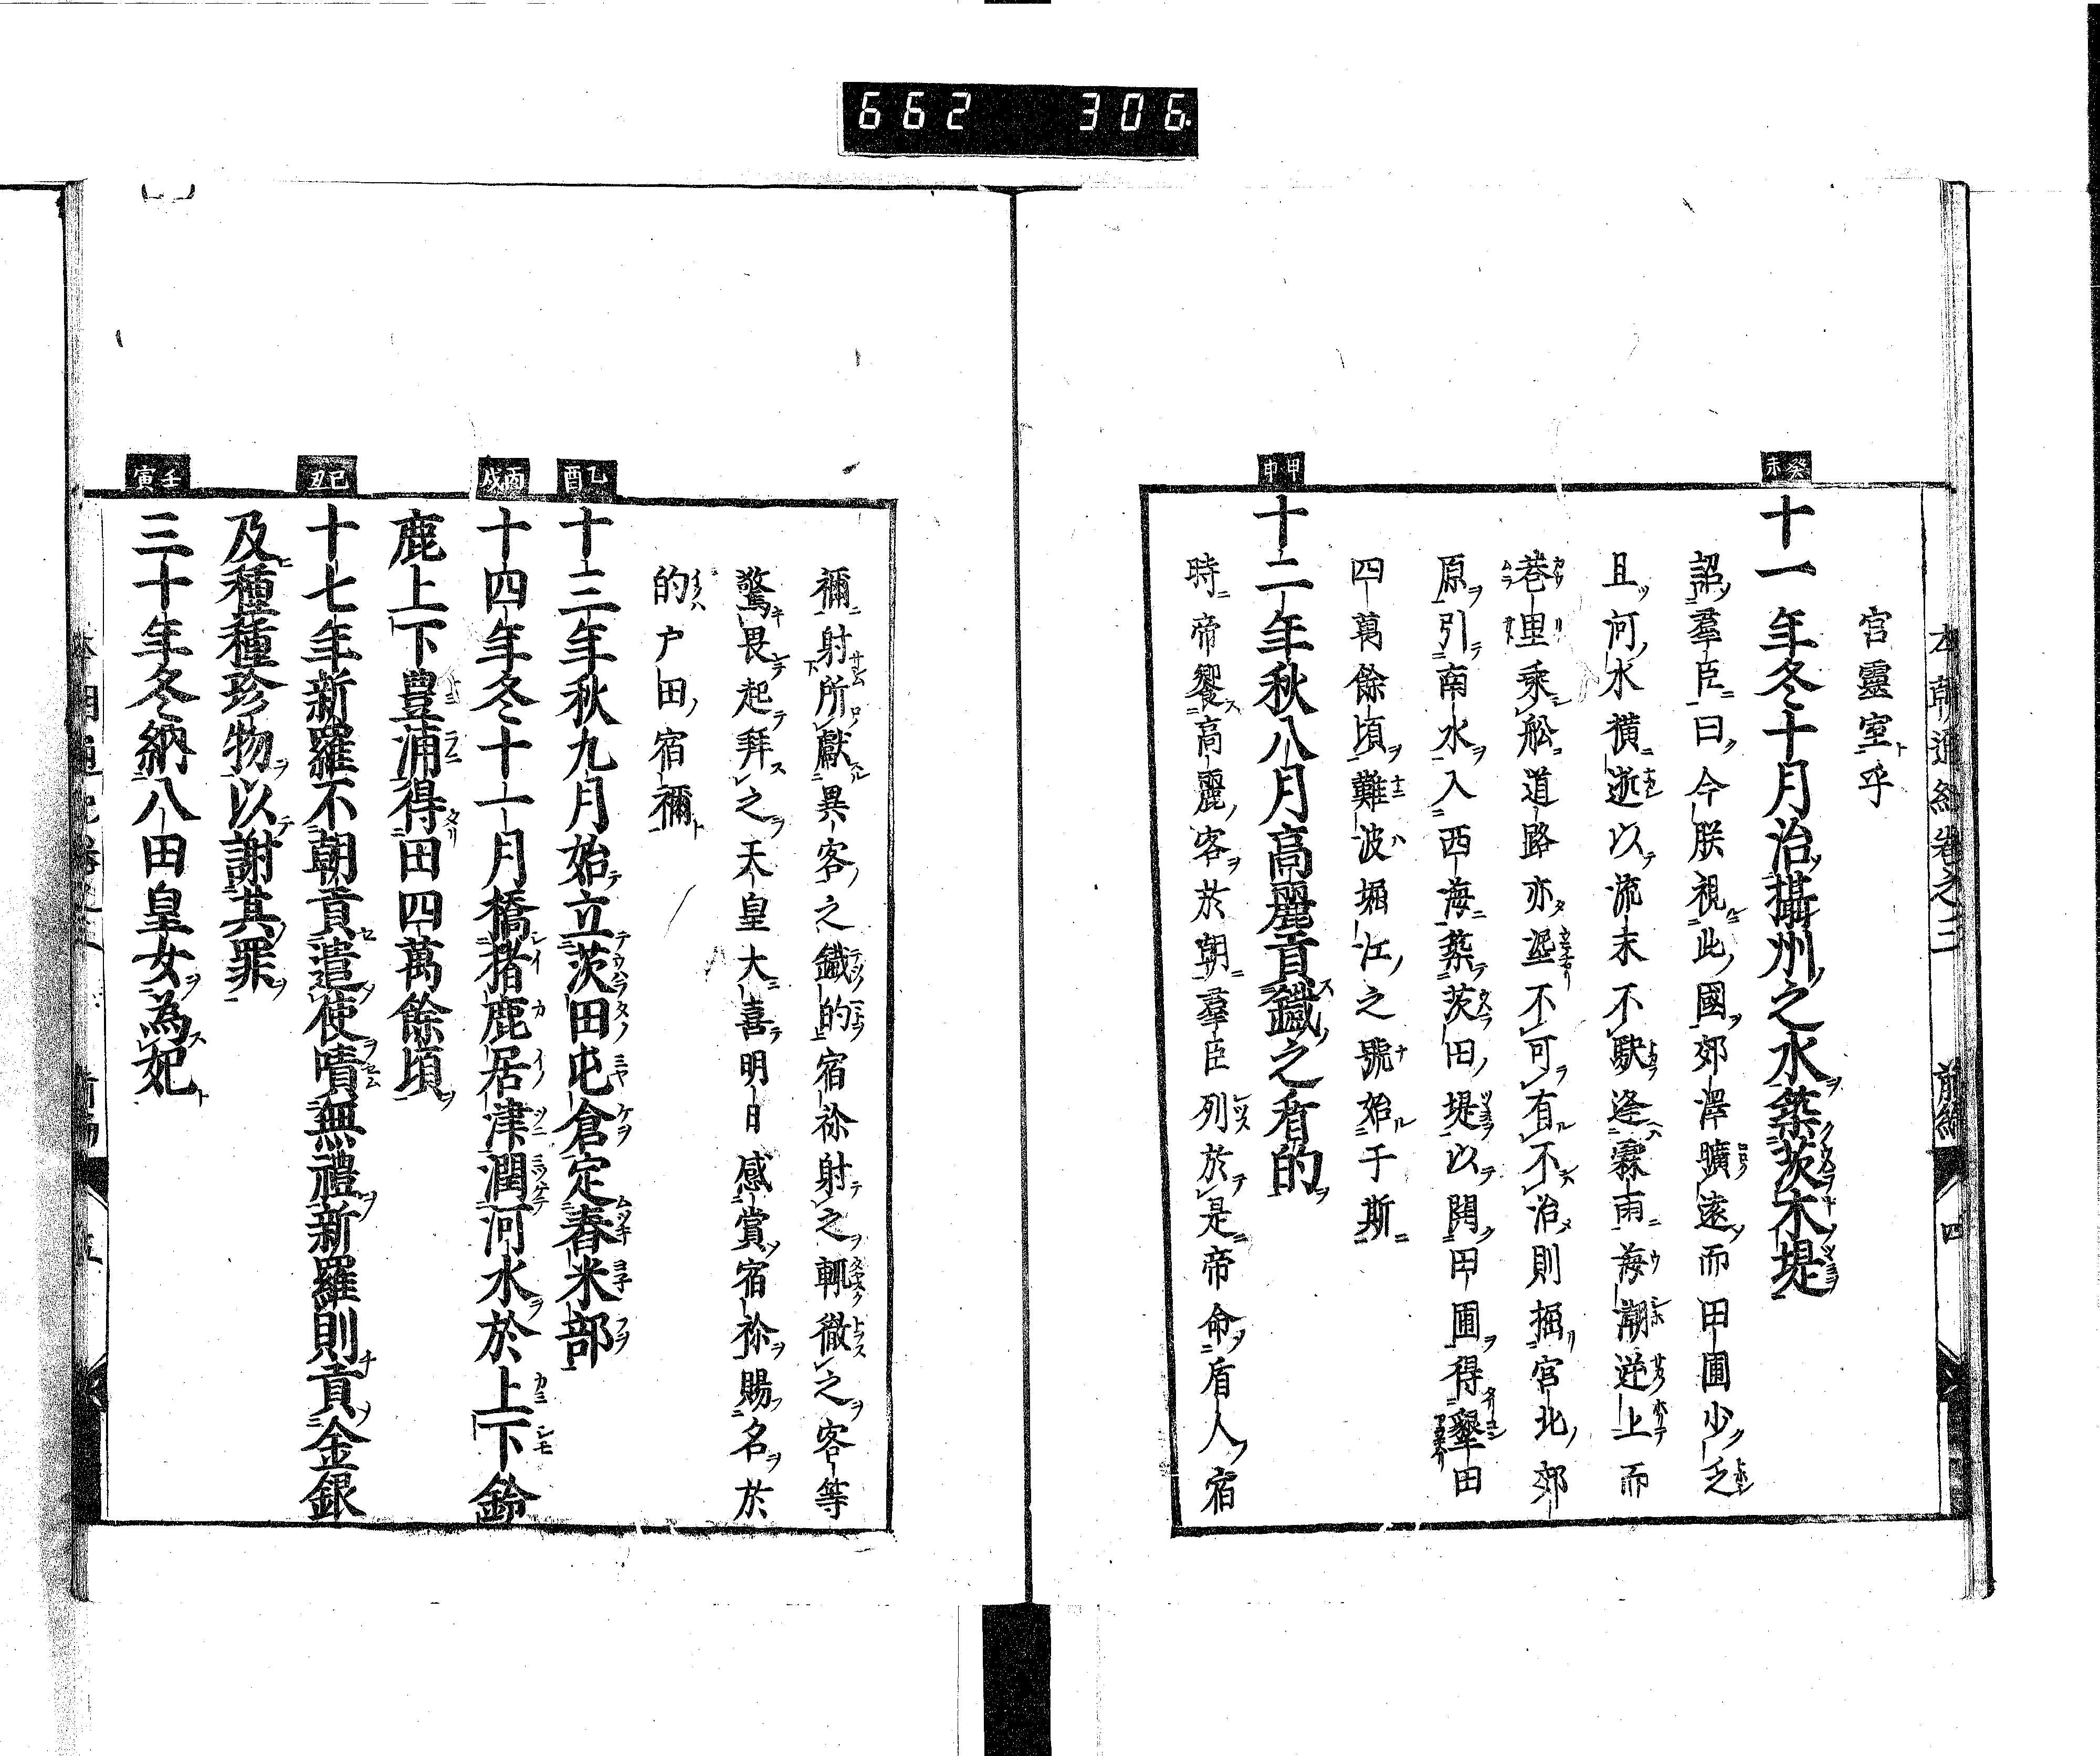 662 306.
本朝通紀卷之三 前編 四
宮靈室乎
癸未
十一年冬十月治攝州之水築茨木堤
詔羣臣曰今朕視此國郊澤曠遠而田圃少乏
且河水横逝以流末不駃逢霖雨海潮逆上而
巷里乘舩道路亦泥不可有不治則掘宮北郊
原引南水入西海築茨田堤以闢田圃得墾田
四萬餘頃難波堀江之號始于斯
甲申
十二年秋八月高麗貢鐵之盾的
時帝饗高麗客於朝羣臣列於是帝命盾人宿
禰射所獻異客之鐵的宿祢射之輙徹之客等
驚畏起拜之天皇大喜明日感賞宿祢賜名於
的户田宿禰
乙酉
十三年秋九月始立茨田屯倉定舂米部
丙戌
十四年冬十一月橋猪鹿居津潤河水於上下鈴
鹿上下豊浦得田四萬餘頃
己丑
十七年新羅不朝貢遣使嘖無禮新羅則貢金銀
及種種珍物以謝其罪
壬寅
三十年冬納八田皇女為妃